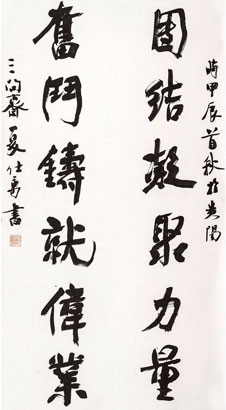 時甲辰首秋於貴陽
團結凝聚力量
奮鬥鑄就偉業
三問齋夏仕勇書